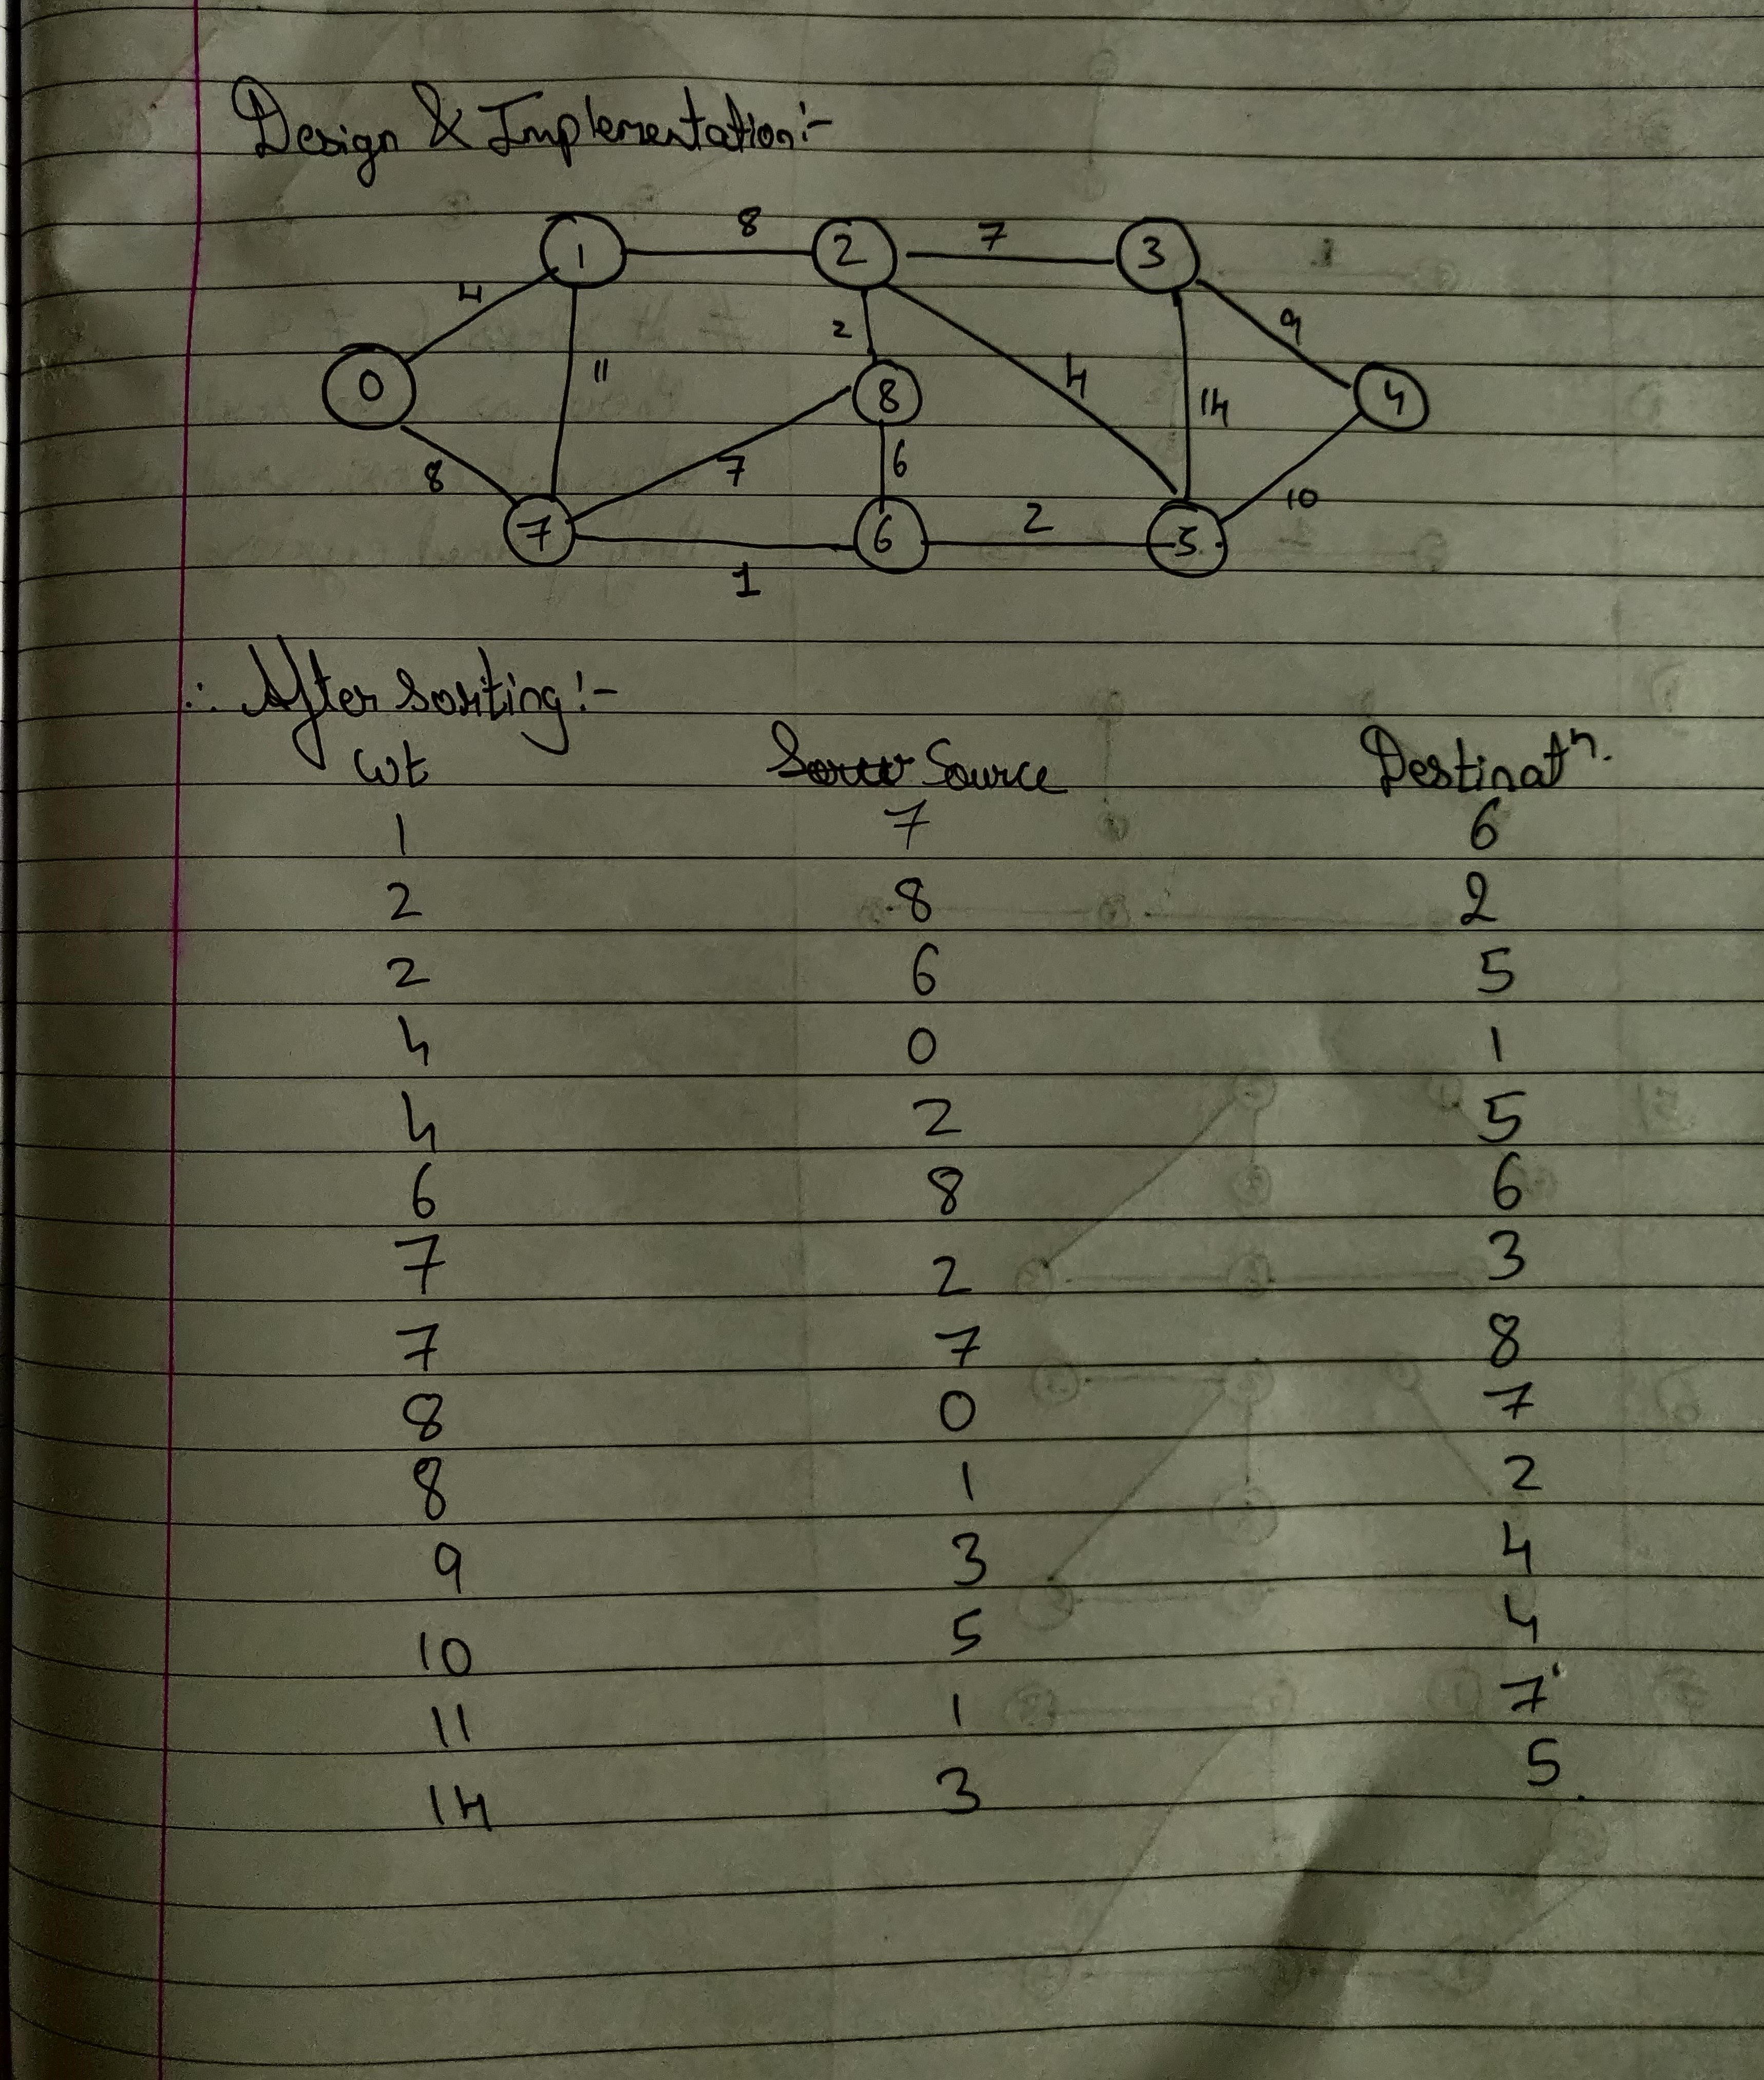 Design & Implementation:-
1 8 2 7 3
4 2 9
0 11 8 4 14 4
8 7 6 10
7 6 2 5
1
∴ After sorting:-
Wt Source Destinatⁿ.
1 7 6
2 8 2
2 6 5
4 0 1
4 2 5
6 8 6
7 2 3
7 7 8
8 0 7
8 1 2
9 3 4
10 5 4
11 1 7
14 3 5